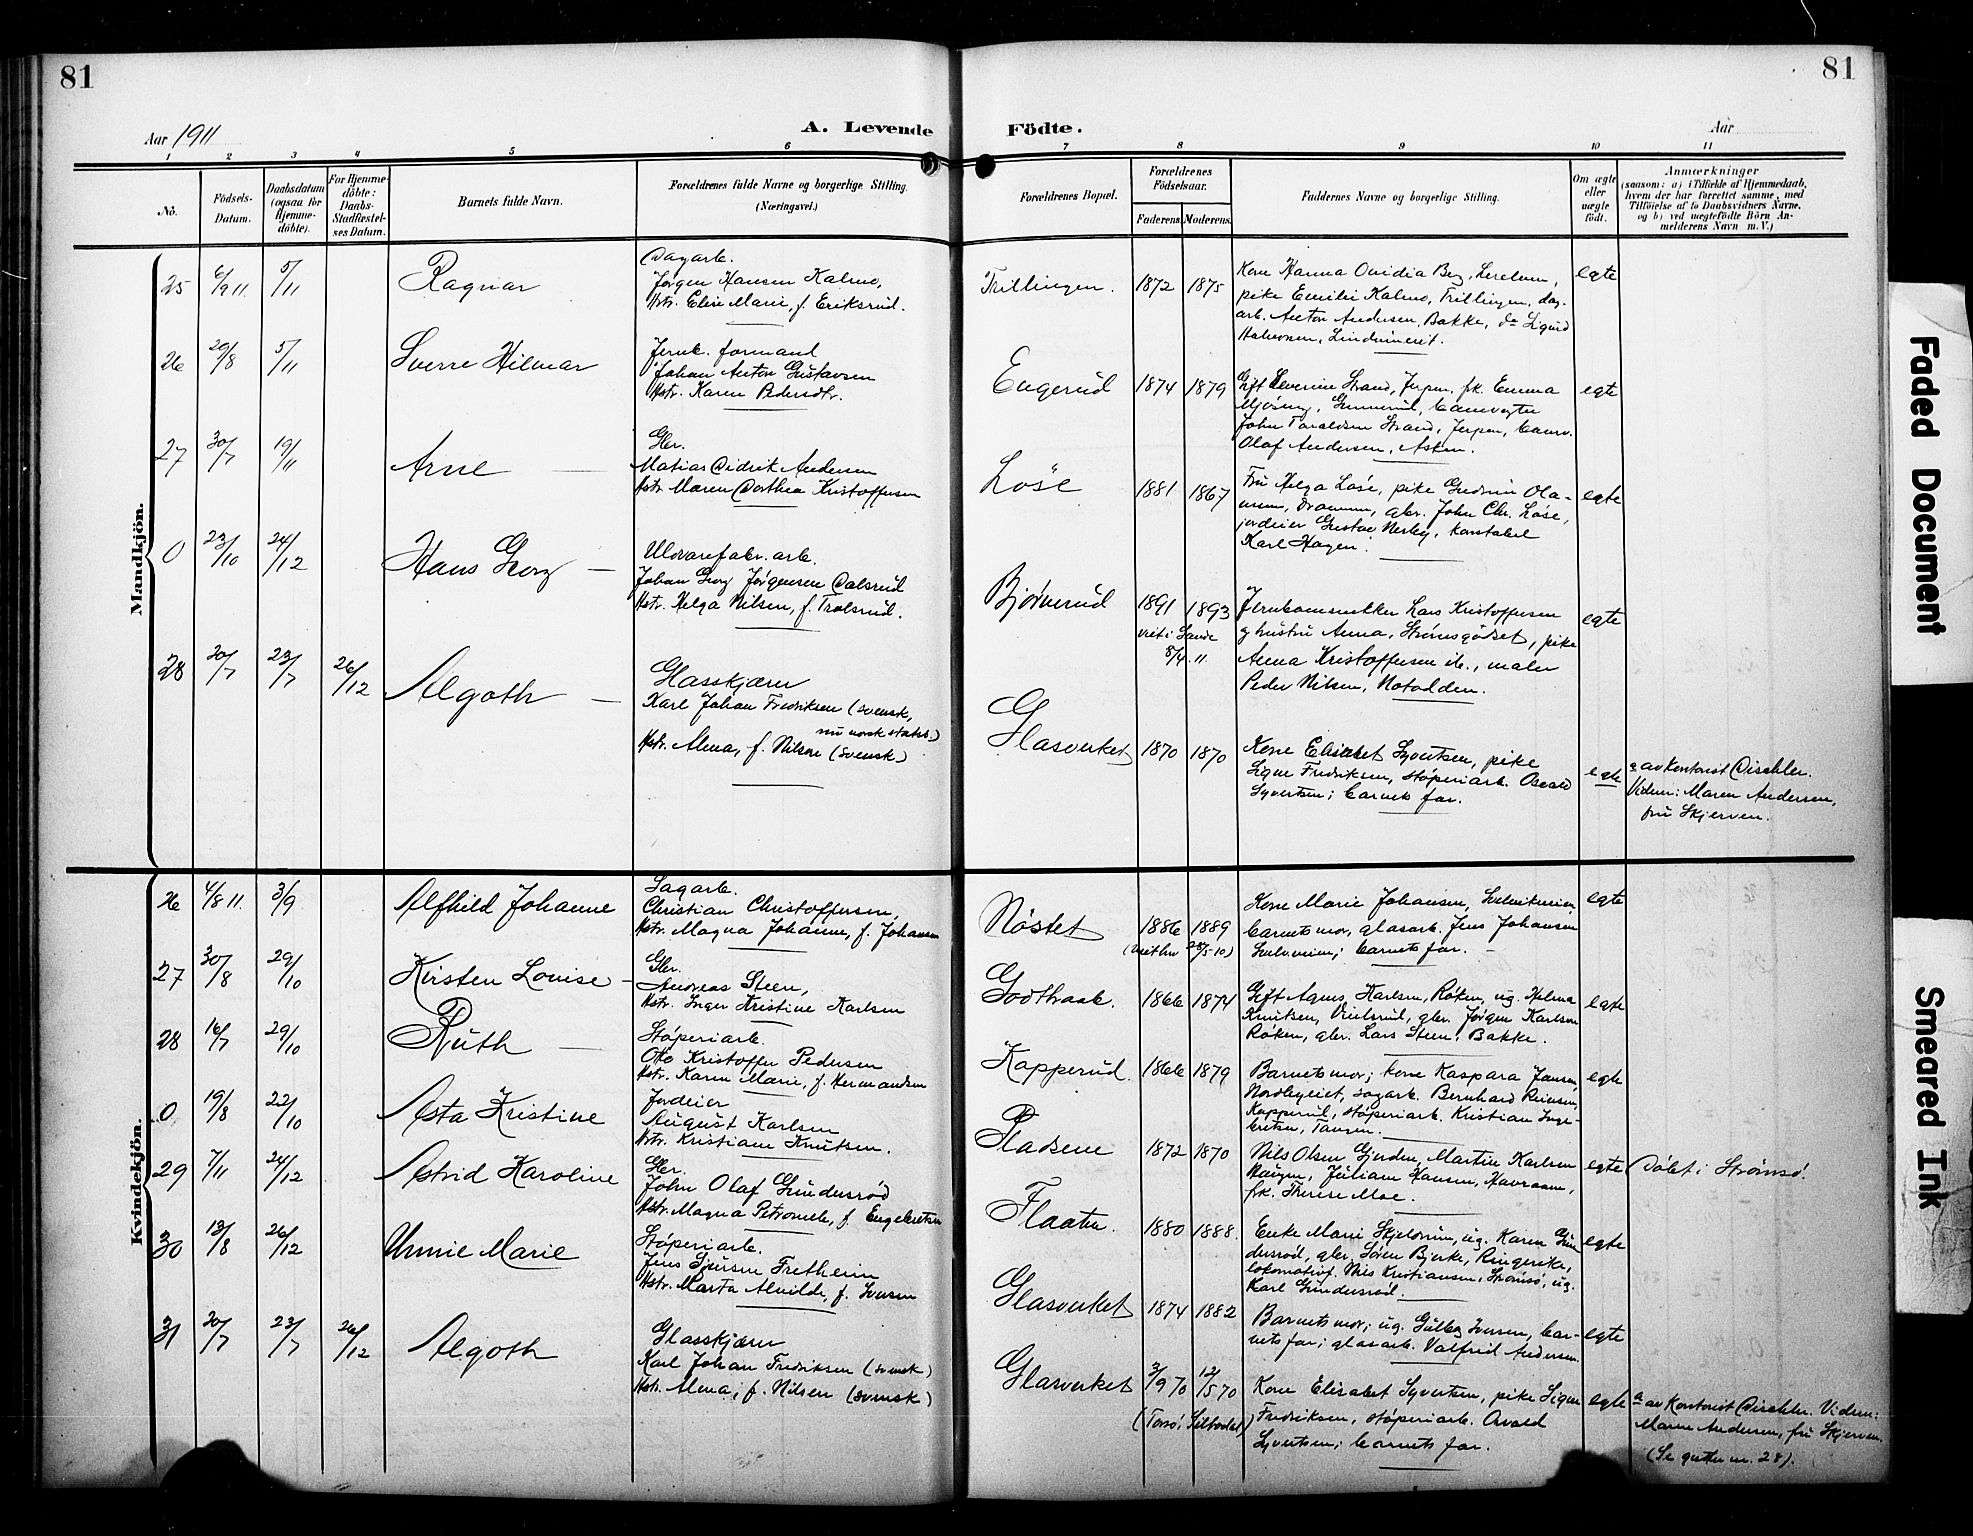 81
81
Aar 1911
A. Levende
Födte.
Aar
1 2 3 4 5 6 7 8 9 10 11
No.
Födsels-
Datum.
Daabsdatum
(ogsaa for
Hjemme-
döbte).
For Hjemme-
döbte:
Daabs-
Stadfæstel-
ses Datum.
Barnets fulde Navn.
Forældrenes fulde Navne og borgerlige Stilling.
(Næringsvei.)
Forældrenes Bopæl.
Forældrenes
Födselsaar.
Faderens. Moderens.
Faddernes Navne og borgerlige Stilling.
Om ægte
eller
uægte
födt.
Anmærkninger
(saasom: a) i Tilfælde af Hjemmedaab,
hvem der har forrettet samme, med
Tilföielse af to Daabsvidners Navne,
og b) ved uægtefödte Börn An-
melderens Navn m. V.)
Mandkjön.
25 6/9 11. 5/11 Ragnar
Dagarb.
Jørgen Hansen Kalmo,
Hstr. Eline Marie, f. Eriksrud.
Trillingen. 1872 1875
Kone Hanna Ovidia Berg,
pike Emilie Kalmo, Trillingen, dag-
arb. Anton Andersen, Bakke, do Sigurd
Halvorsen,
egte
26 29/8 5/11 Sverre Hilmar
Jernb. formand
Johan Anton Gustavsen
Hstr. Karen Pedersdtr.
Engerud 1874 1879
Gift Severine Strand, Jerpen, frk. Emma
Mjösing, Gunnerud, banevogter
John Taraldsen Strand, Jerpen, banev.
Olaf Andersen, Asken.
egte
27 30/7 19/11 Arne
Gbr.
Matias Didrik Andersen
Hstr. Maren Dorthea Kristoffersen
Løse 1881 1867
Fru Helga Løse, pike Gudrun Ola-
ursen, Drammen, gbr. John Chr. Løse,
jordeier Gustav Nerby, konstabel
Karl Hagen.
egte
0 23/10 24/12 Hans Georg
Uldvarefabr. arb.
Johan Georg Jørgensen Dalsrud
Hstr. Helga Nilsen, f. Trolsrud.
Bjørnerud 1891 1893
viet i Sande
8/4 11.
Jernbanesnekker Lars Kristoffersen
og hustru Anna, Strømsgodset, pike
Anna Kristoffersen ib., maler
Peder Nilsen, Notodden.
egte
28 20/7 23/7 26/12 Algoth
Glasskjærer
Karl Johan Fredriksen (svensk,
nu norsk statsb.)
Hstr. Alma, f. Nilsen (svensk)
Glasverket 1870 1870
Kone Elisabet Syvertsen, pike
Signe Fredriksen, støperiarb. Osvald
Syvertsen; barnets far.
egte
a av kontorist Dischler.
Vidner: Maren Andersen,
fru Skjerven.
Kvindekjön.
26 4/8 11. 3/9 Alfhild Johanne
Sagarb.
Christian Christoffersen,
Hstr. Magna Johanne, f. Johansen
Nøstet 1886 1889
(viet hv 28/5 10)
Kone Marie Johansen,
barnets mor, glasarb. Jens Johansen
barnets far.
egte
27 30/8 29/10 Kirsten Louise
Gbr.
Andreas Steen,
Hstr. Inger Kristine Karlsen
Godthaab. 1866 1874
Gift Agnes Karlsen, Røken, ug. Helma
Knutsen, gbr. Jørgen Karlsen
Røken, gbr. Lars Steen, Bakke.
egte
28 16/7 29/10 Ruth
Støperiarb.
Otto Kristoffer Pedersen
Hstr. Karen Marie, f. Hermandsen
Kapperud. 1866 1879
Barnets mor; kone Kaspara Jansen,
Nordbyeiet, sagarb. Bernhard
Kapperud, støperiarb. Kristian Inge-
bretsen, Tangen.
egte
0 19/8 22/10 Asta Kristine
Jordeier
August Karlsen
Hstr. Kristiane Knutsen.
Pladsene 1872 1870
Nils Olsen Gjerden, Martin Karlsen
Haugen, Juliane Hansen,
frk. Therese Moe.
egte Døbt i Strømsø.
29 7/11 24/12 Astrid Karoline
Gbr.
John Olaf Gundersrød
Hstr. Magna Petronelle, f. Engebretsen
Flaaten. 1880 1888.
Enke Marie Skjeldrum, ug. Karen Gun-
dersrød, gbr. Søren Bjerke, Ringerike,
lokomotivf. Nils Kristiansen, Strømsø, ug.
Karl Gundersrød.
egte
30 13/8 26/12 Unnie Marie
Støperiarb.
Jens Sjursen Fretheim
Hstr. Marta Alvilde, f. Iversen
Glasverket 1874 1882
Barnets mor; ug. Gulbg Iversen, bar-
nets far; glasarb. Valfrid Andersen.
egte
31 20/7 23/7 26/12 Algoth
Glasskjærer
Karl Johan Fredriksen (svensk)
Hstr. Alma, f. Nilsen (svensk)
Glasverket 3/9 70 12/5 70
(Torsö, Silbodal)
Kone Elisabet Syvertsen, pike Signe
Fredriksen, støperiarb. Osvald
Syvertsen; barnets far.
egte
a av kontorist Dischler. Vidner:
Maren Andersen, fru Skjerven.
(Se gutter nr. 28).
Faded Document
Smeared Ink